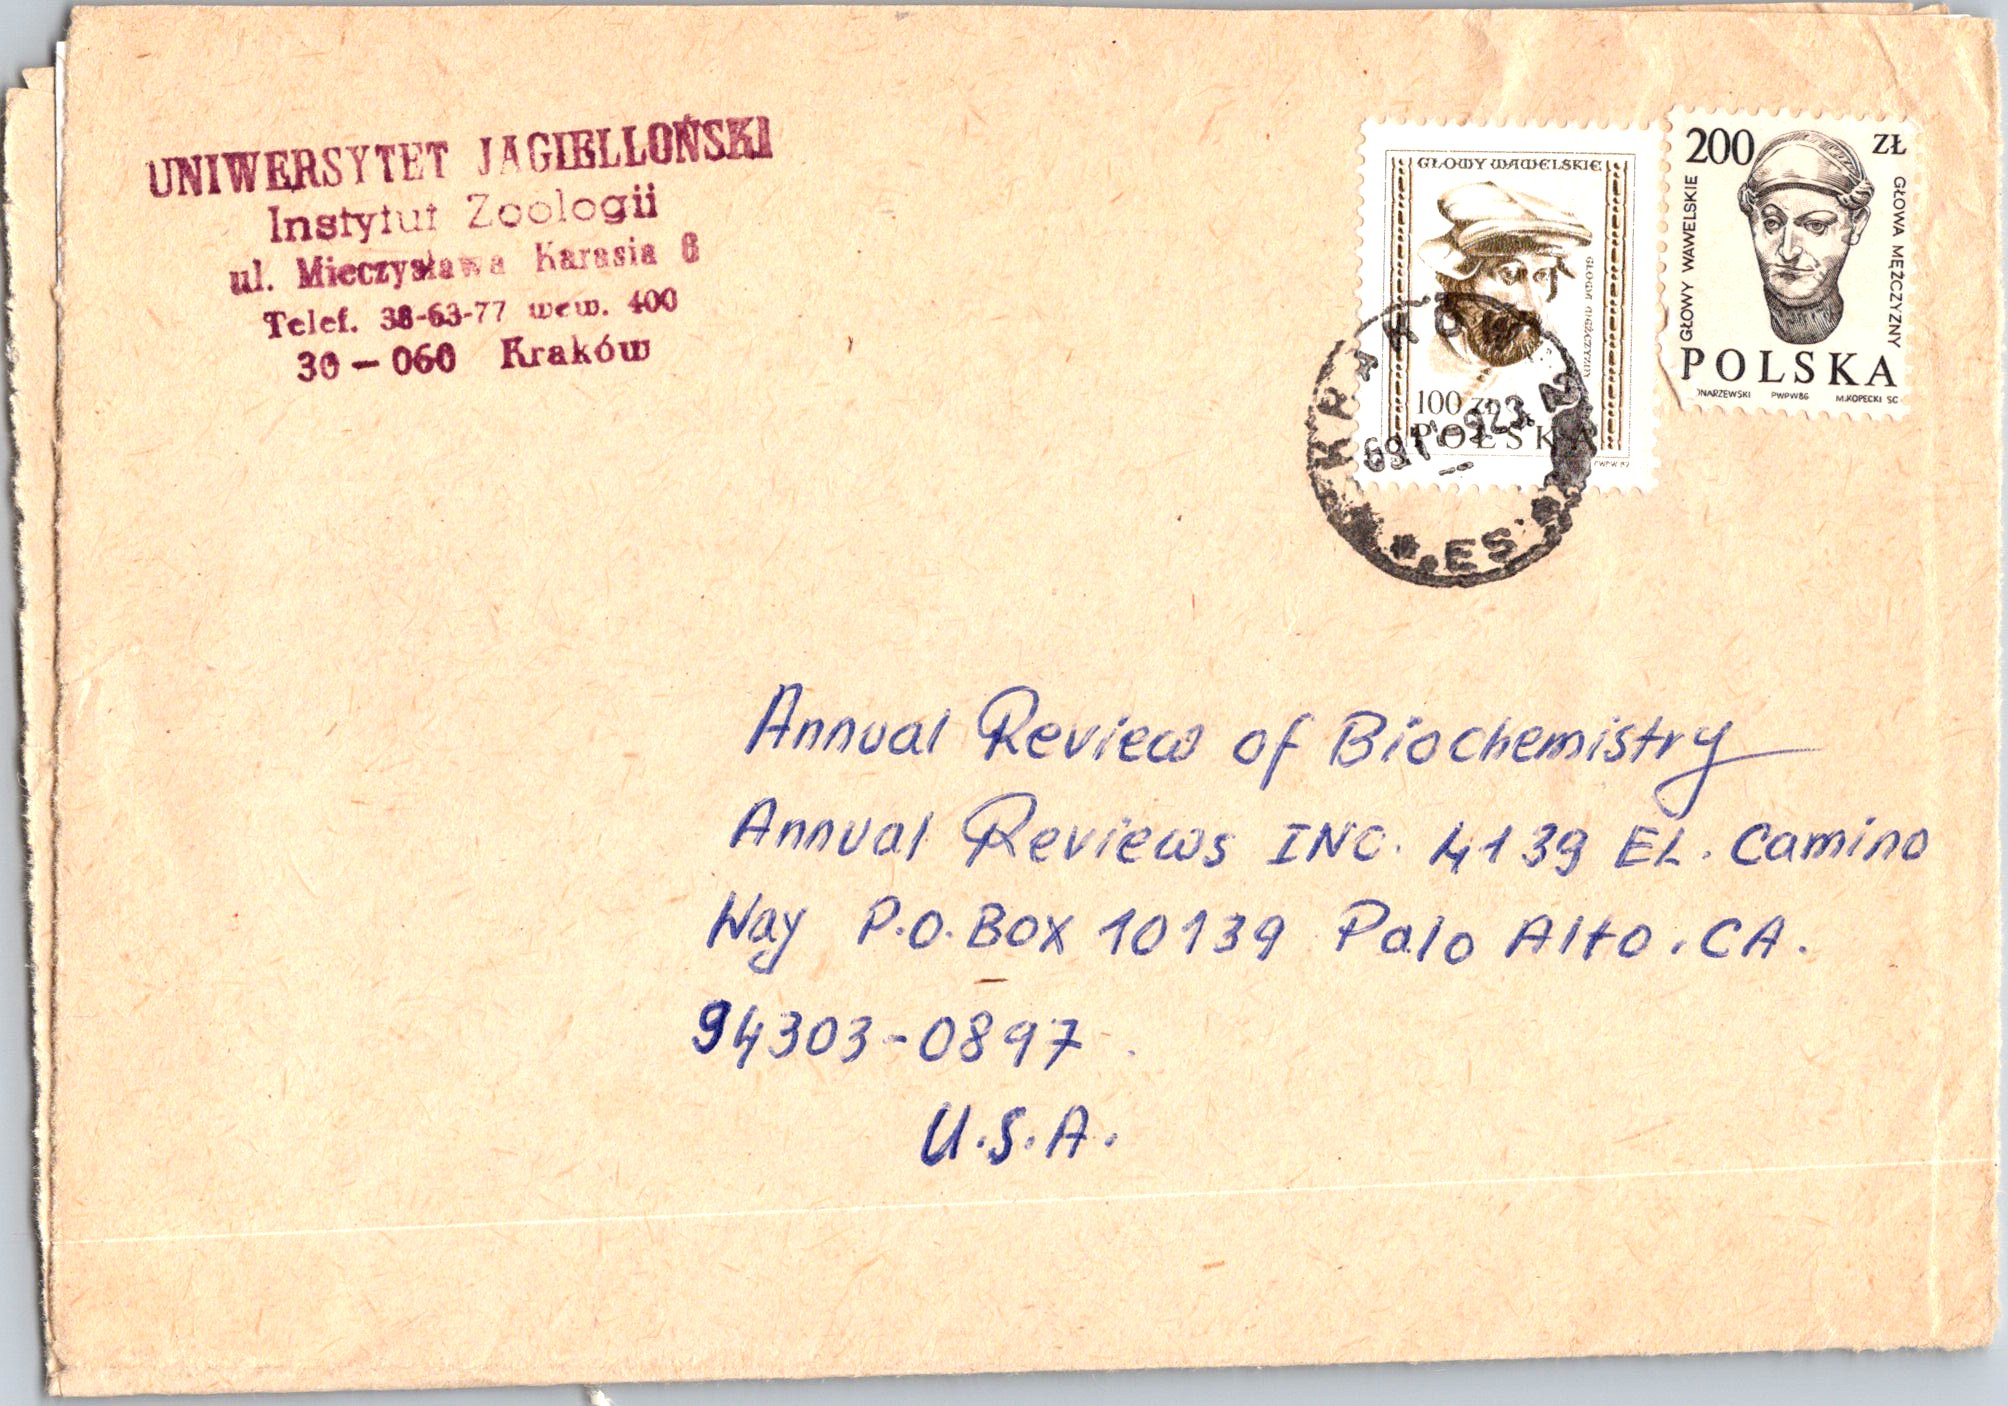 UNIWERSYTET JAGIELLOŃSKI
Instytut Zoologii
ul. Mieczysława Karasia 6
Telef. 38-63-77 wew. 400
30 - 060 Kraków
GŁOWY WAWELSKIE
GŁOWA MĘŻCZYZNY
100 ZŁ
POLSKA
PWPW 82
200 ZŁ
GŁOWY WAWELSKIE
GŁOWA MĘŻCZYZNY
POLSKA
PWPW 86 M.KOPECKI SC
KRAKÓW
ES
Annual Review of Biochemistry
Annual Reviews INC. 4139 EL. Camino
Way P.O. Box 10139 Palo Alto. CA.
94303-0897
U.S.A.